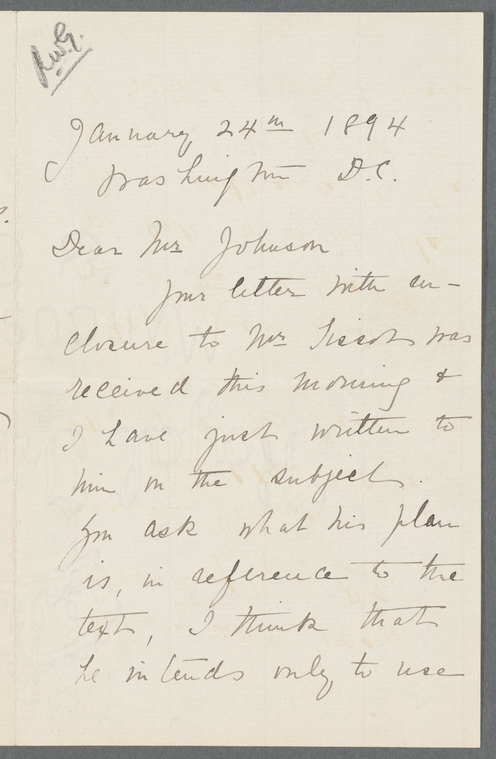 R.W.G.
January 24th 1894
Washington D.C.
Dear Mr Johnson
Your letter with en-
closure to Mr Tissot was
received this morning &
I have just written to
him on the subject.
You ask what his plan
is, in reference to the
text, I think that
he intends only to use